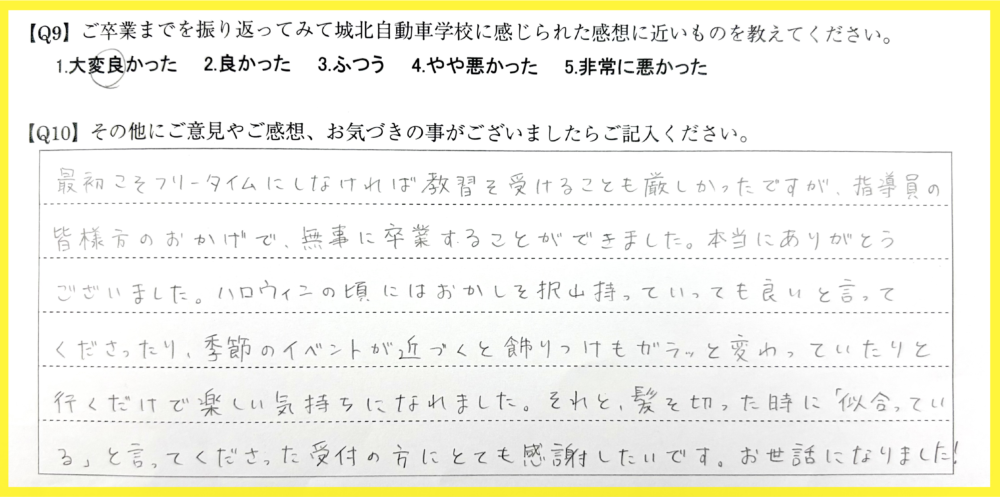 【Q9】ご卒業までを振り返ってみて城北自動車学校に感じられた感想に近いものを教えてください。
1.大変良かった 2.良かった 3.ふつう 4.やや悪かった 5.非常に悪かった
【Q10】その他にご意見やご感想、お気づきの事がございましたらご記入ください。
最初こそフリータイムにしなければ教習を受けることも厳しかったですが、指導員の
皆様方のおかげで、無事に卒業することができました。本当にありがとう
ございました。ハロウィンの頃にはおかしを沢山持っていっても良いと言って
くださったり、季節のイベントが近づくと飾りつけもガラッと変わっていたりと
行くだけで楽しい気持ちになれました。それと、髪を切った時に「似合ってい
る」と言ってくださった受付の方にとても感謝したいです。お世話になりました!